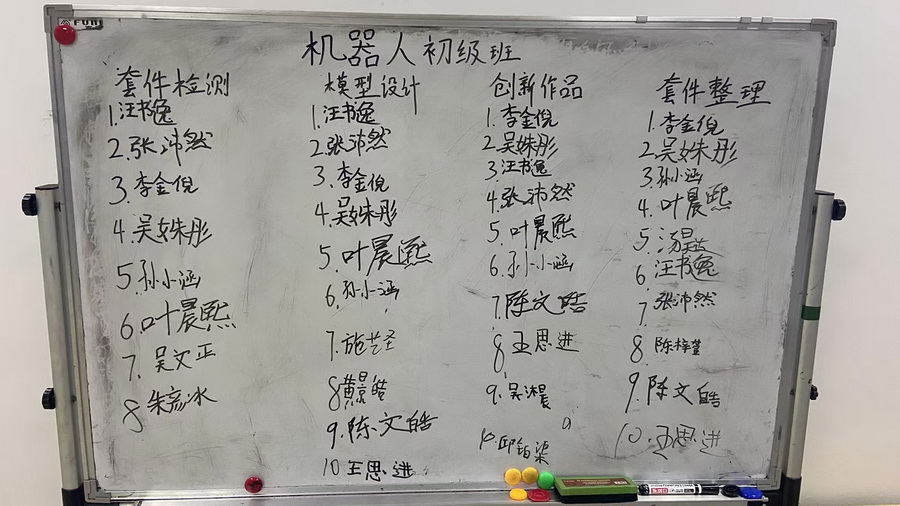 机器人初级班
套件检测
1.汪书逸
2.张沛然
3.李金倪
4.吴姝彤
5.孙小涵
6.叶晨熙
7.吴文正
8 朱彦冰
模型设计
1.汪书逸
2.张沛然
3.李金倪
4.吴姝彤
5.叶晨熙
6.孙小涵
7.施艺圣
8黄景皓
9.陈文皓
10王思进
创新作品
1.李金倪
2.吴姝彤
3.汪书逸
4.张沛然
5.叶晨熙
6.孙小涵
7.陈文皓
8.王思进
9.吴湘晨
10.邱铂柒
套件整理
1.李金倪
2.吴姝彤
3.孙小涵
4.叶晨熙
5.汤昊达
6.汪书逸
7.张沛然
8.陈梓萱
9.陈文皓
10.王思进